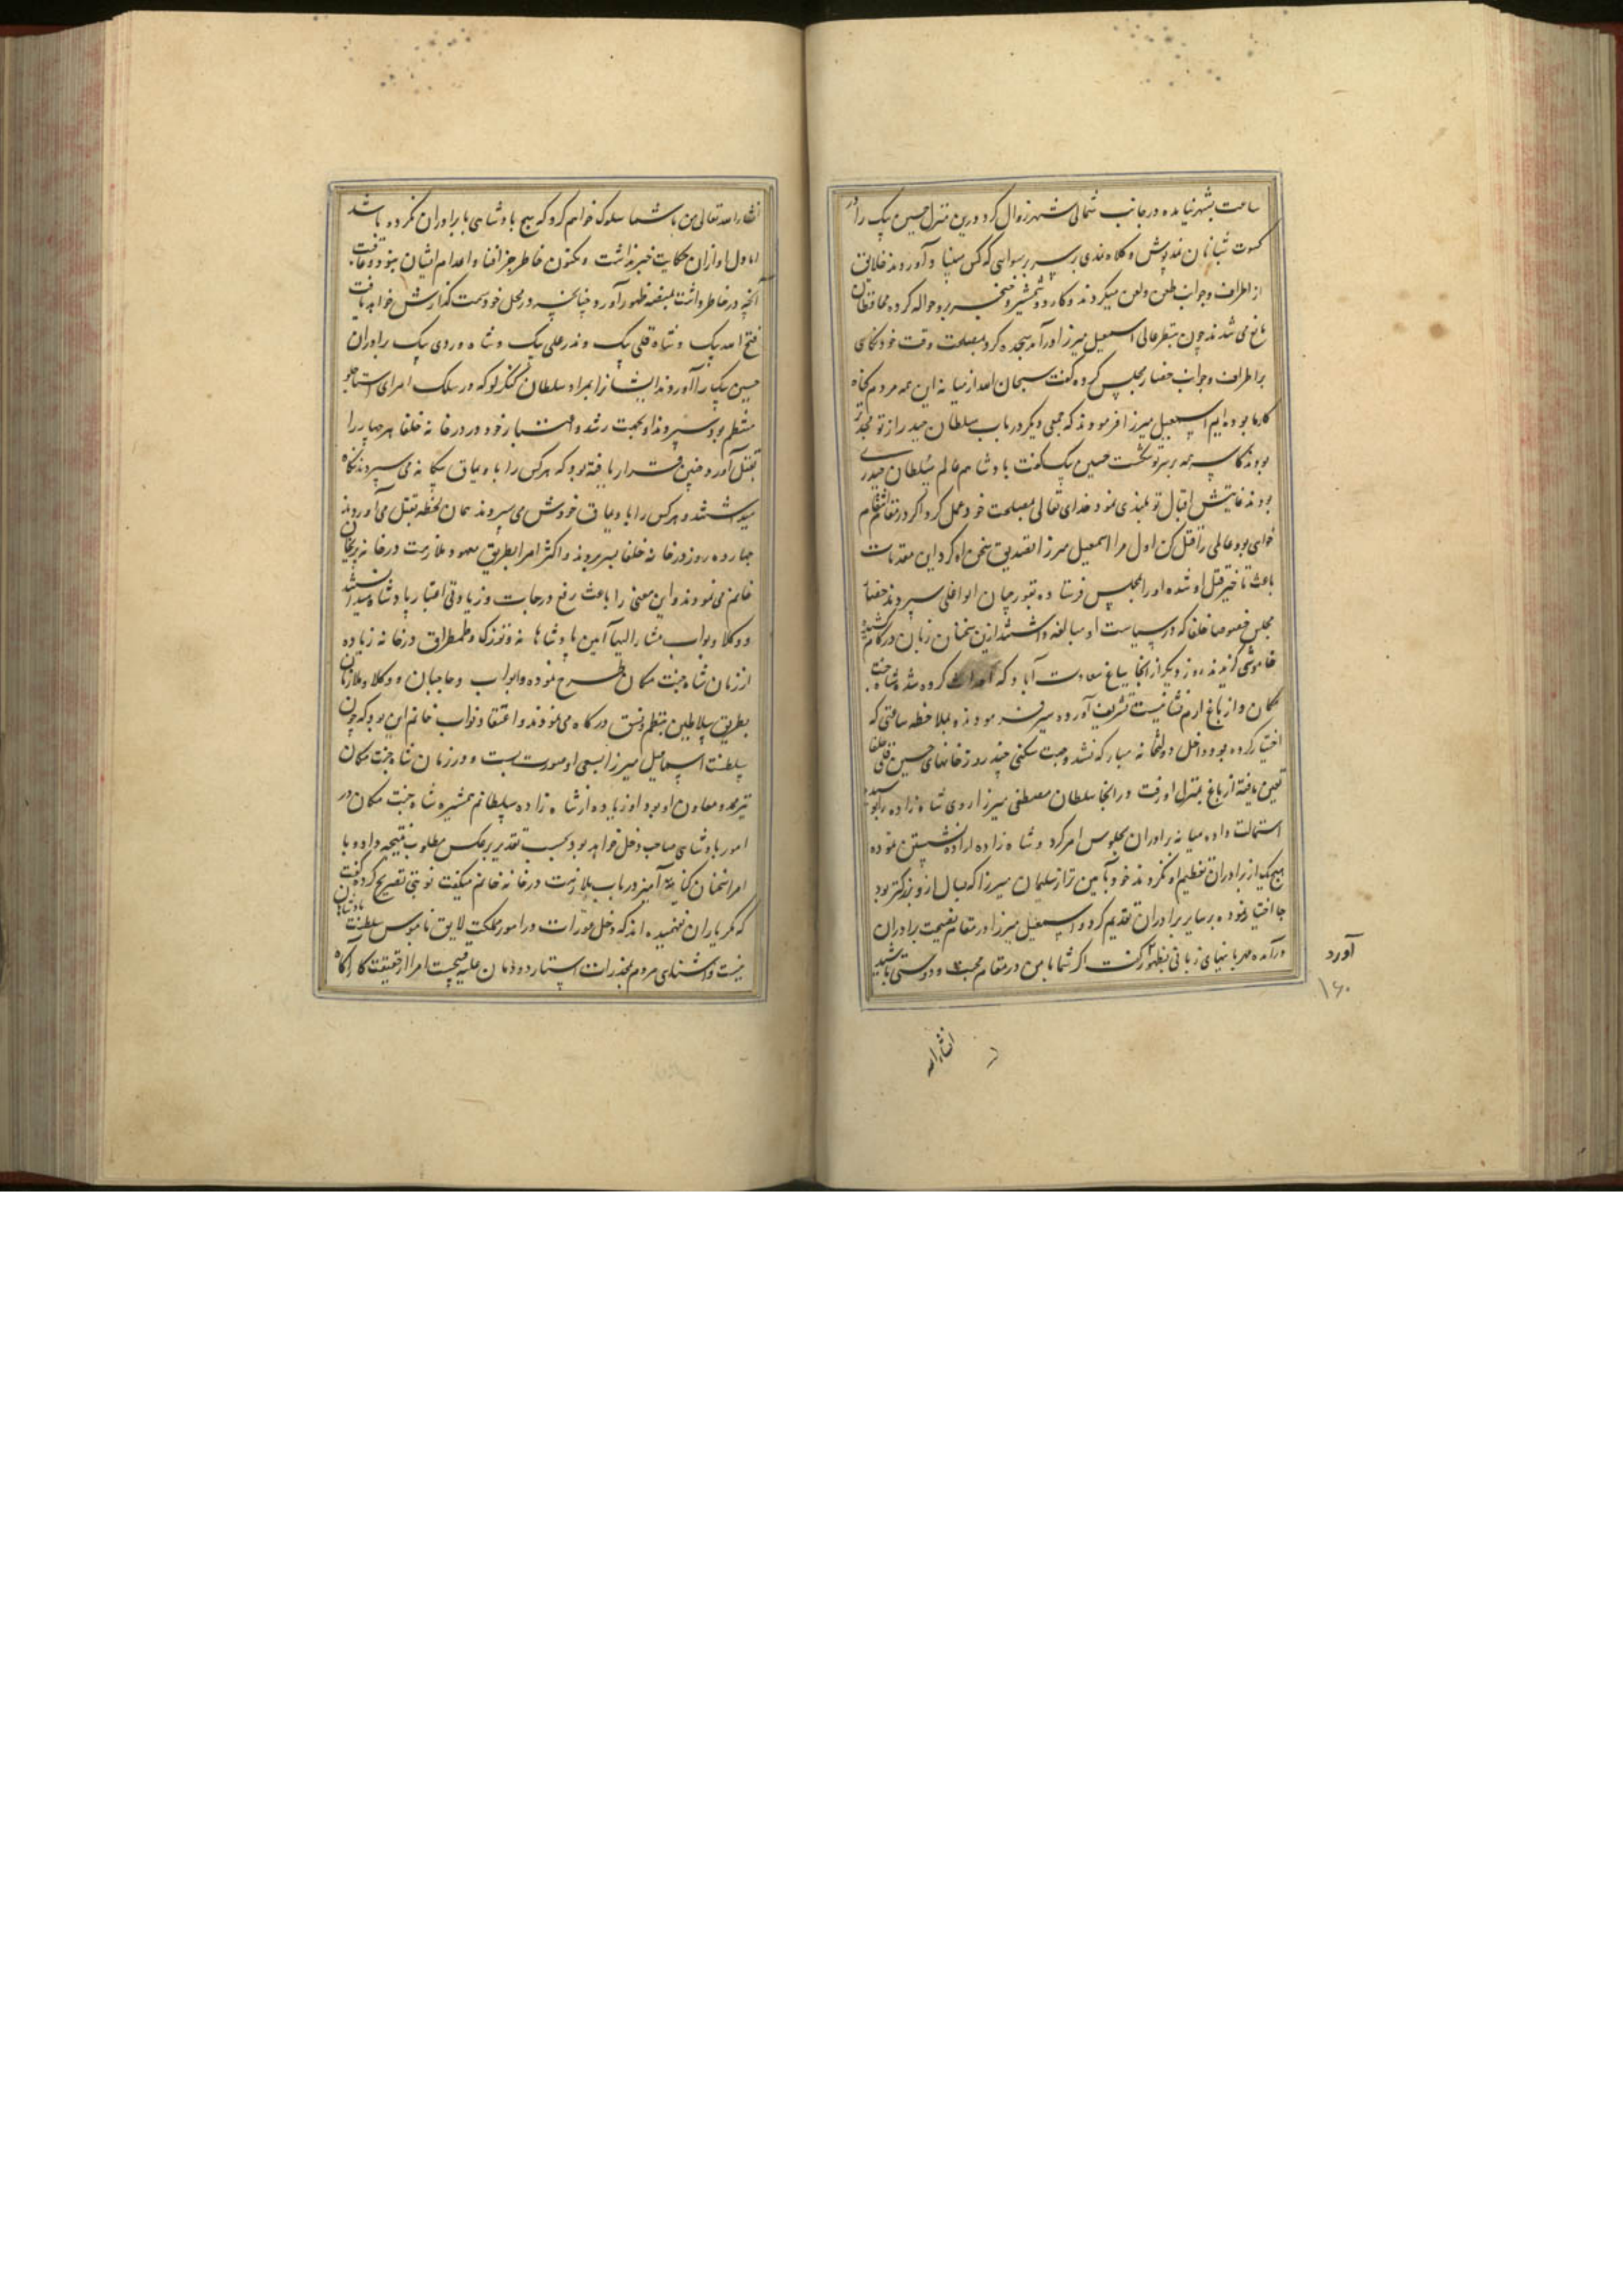 ساعت بشهر نیامده در جانب شمالی شهر نزول کرد و درین منزل حسین بیک را در
کسوت شبانان نمد پوش و کلاه نمدی بر سر برسوایی که کس مبیناد آوردند خلایق
از اطراف و جوانب طعن و لعن میکردند و کارد و شمشیر و خنجر برو حواله کرده محافظان
مانع می شدند چون بنظر عالی اسمعیل میرزا درآمد سجده کرد و بمصلحت وقت خود نگاهی
بر اطراف و جوانب حضار مجلس کرده گفت سبحان الله از میانه این همه مردم گناه
کار ما بوده ایم اسمعیل میرزا فرمودند که جمعی دیگر در باب سلطان حیدر از تو مجدتر
بودند گناه همه بر تو نشست حسین بیک گفت پادشاهم عالم سلطان حیدری
بودند غایتش اقبال تو بلندی نمود خدای تعالی بمصلحت خود عمل کرد اگر در مقام انتقام
خواهی بود عالمی را قتل کن اول مرا اسمعیل میرزا تصدیق سخن او کرد این مقدمات
باعث تاخیر قتل او شده او را بمجلس فرستاده بقورچیان ابواغلی سپردند حضار
مجلس خصوصا خلفا که در سیاست او مبالغه داشتند ازین سخنان زبان در کام کشیده
خاموشی گزیدند روز دیگر از انجا بباغ سعادت آباد که احداث کرده شاه جنت
مکان و از باغ ارم نشانیست تشریف آورده سیر فرمودند و بملاحظه ساعتی که
اختیار کرده بود داخل دولتخانه مبارکه نشد و جهت سکنی چند روز خانهای حسین قلی خلفا
تعیین یافته از باغ بمنزل او رفت و در انجا سلطان مصطفی میرزا روی شاه زاده را بوسیده
استمالت داده میانه برادران بجلوس امر کرد و شاه زاده اراده نشستن نموده
هیچ یک از برادران تعظیم او نکردند خود پائین تر از سلیمان میرزا که بسال ازو بزرگتر بود
جا اختیار نموده بر سایر برادران تقدیم کرد و اسمعیل میرزا در مقام نصیحت برادران
درآمده مهربانیهای زبانی بظهور آورد گفت اگر شما با من در مقام محبت و دوستی باشید
آورد
۱۶۰
انشاء الله
انشاء الله تعالی من با شما سلوک خواهم کرد که هیچ پادشاهی با برادران نکرده باشد
اما دل او ازان حکایت خبر نداشت و مکنون خاطر جز افنا و اعدام ایشان نبود و عاقبت
آنچه در خاطر داشت بمنصه ظهور آورد چنانچه در محل خود سمت گذارش خواهد یافت
فتح الله بیک و شاه قلی بیک و نذر علی بیک و شاه وردی بیک برادران
حسین بیک را آوردند ایشانرا بمراد سلطان گنگرلو که در سلک امرای استاجلو
منتظم بود سپردند او بجهت رشد و اعتبار خود در در خانه خلفا هر چهار را
بقتل آورد و چنین قرار یافته بود که هر کس را با ویماق بیگانه می سپردند نگاه
میداشتند و هر کس را با ویماق خودش می سپردند همان لحظه بقتل می آوردند
چهارده روز در خانه خلفا بسر بردند و اکثر امرا بطریق معهود ملازمت در خانه پریخان
خانم می نمودند و این معنی را باعث رفع درجات و زیادتی اعتبار پادشاه میدانستند
و وکلا و نواب مشار الیها آئین پادشاهانه و توزک و طمطراق در خانه زیاده
از زمان شاه جنت مکان طرح نموده و ابواب و حاجبان و وکلا و ملازمان
بطریق سلاطین بنظم و نسق درگاه می نمودند و اعتقاد نواب خانم این بود که چون
سلطنت اسماعیل میرزا بسعی او صورت بست و در زمان شاه جنت مکان
نیز ممد و معاون او بود او زیاده از شاه زاده سلطانم همشیره شاه جنت مکان در
امور پادشاهی صاحب دخل خواهد بود بحسب تقدیر بر عکس مطلوب نتیجه داد و با
امرا سخنان کنایه آمیز در باب ملازمت در خانه خانم میگفت نوبتی تصریح کرده گفت
که مگر یاران نفهمیده اند که دخل عورات در امور مملکت لایق ناموس سلطنت پادشاهان
نیست و آشنائی مردم بمخدرات استار دودمان علیه قبیحست امرا از حقیقت کار آگاه